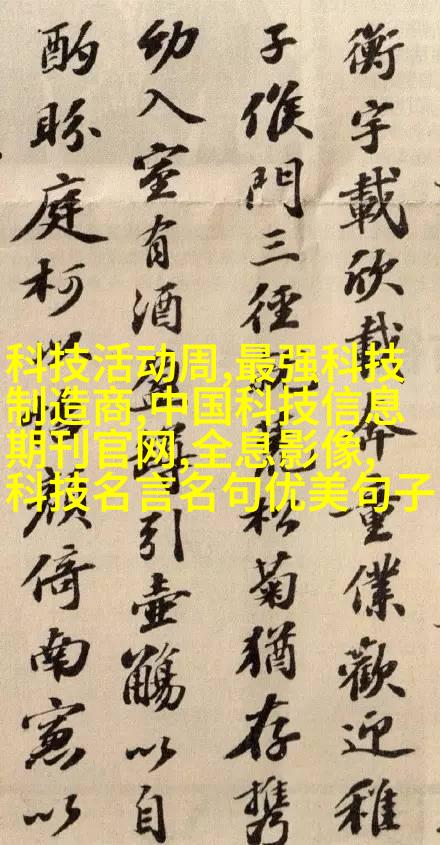 衡宇載欣載奔童僕歡迎稚
子候門三徑就荒松菊猶存携
幼入室有酒盈樽引壺觴以自
酌眄庭柯以怡顔倚南窓以
科技活动周,最强科技
制造商,中国科技信息
期刊官网,全息影像,
科技名言名句优美句子